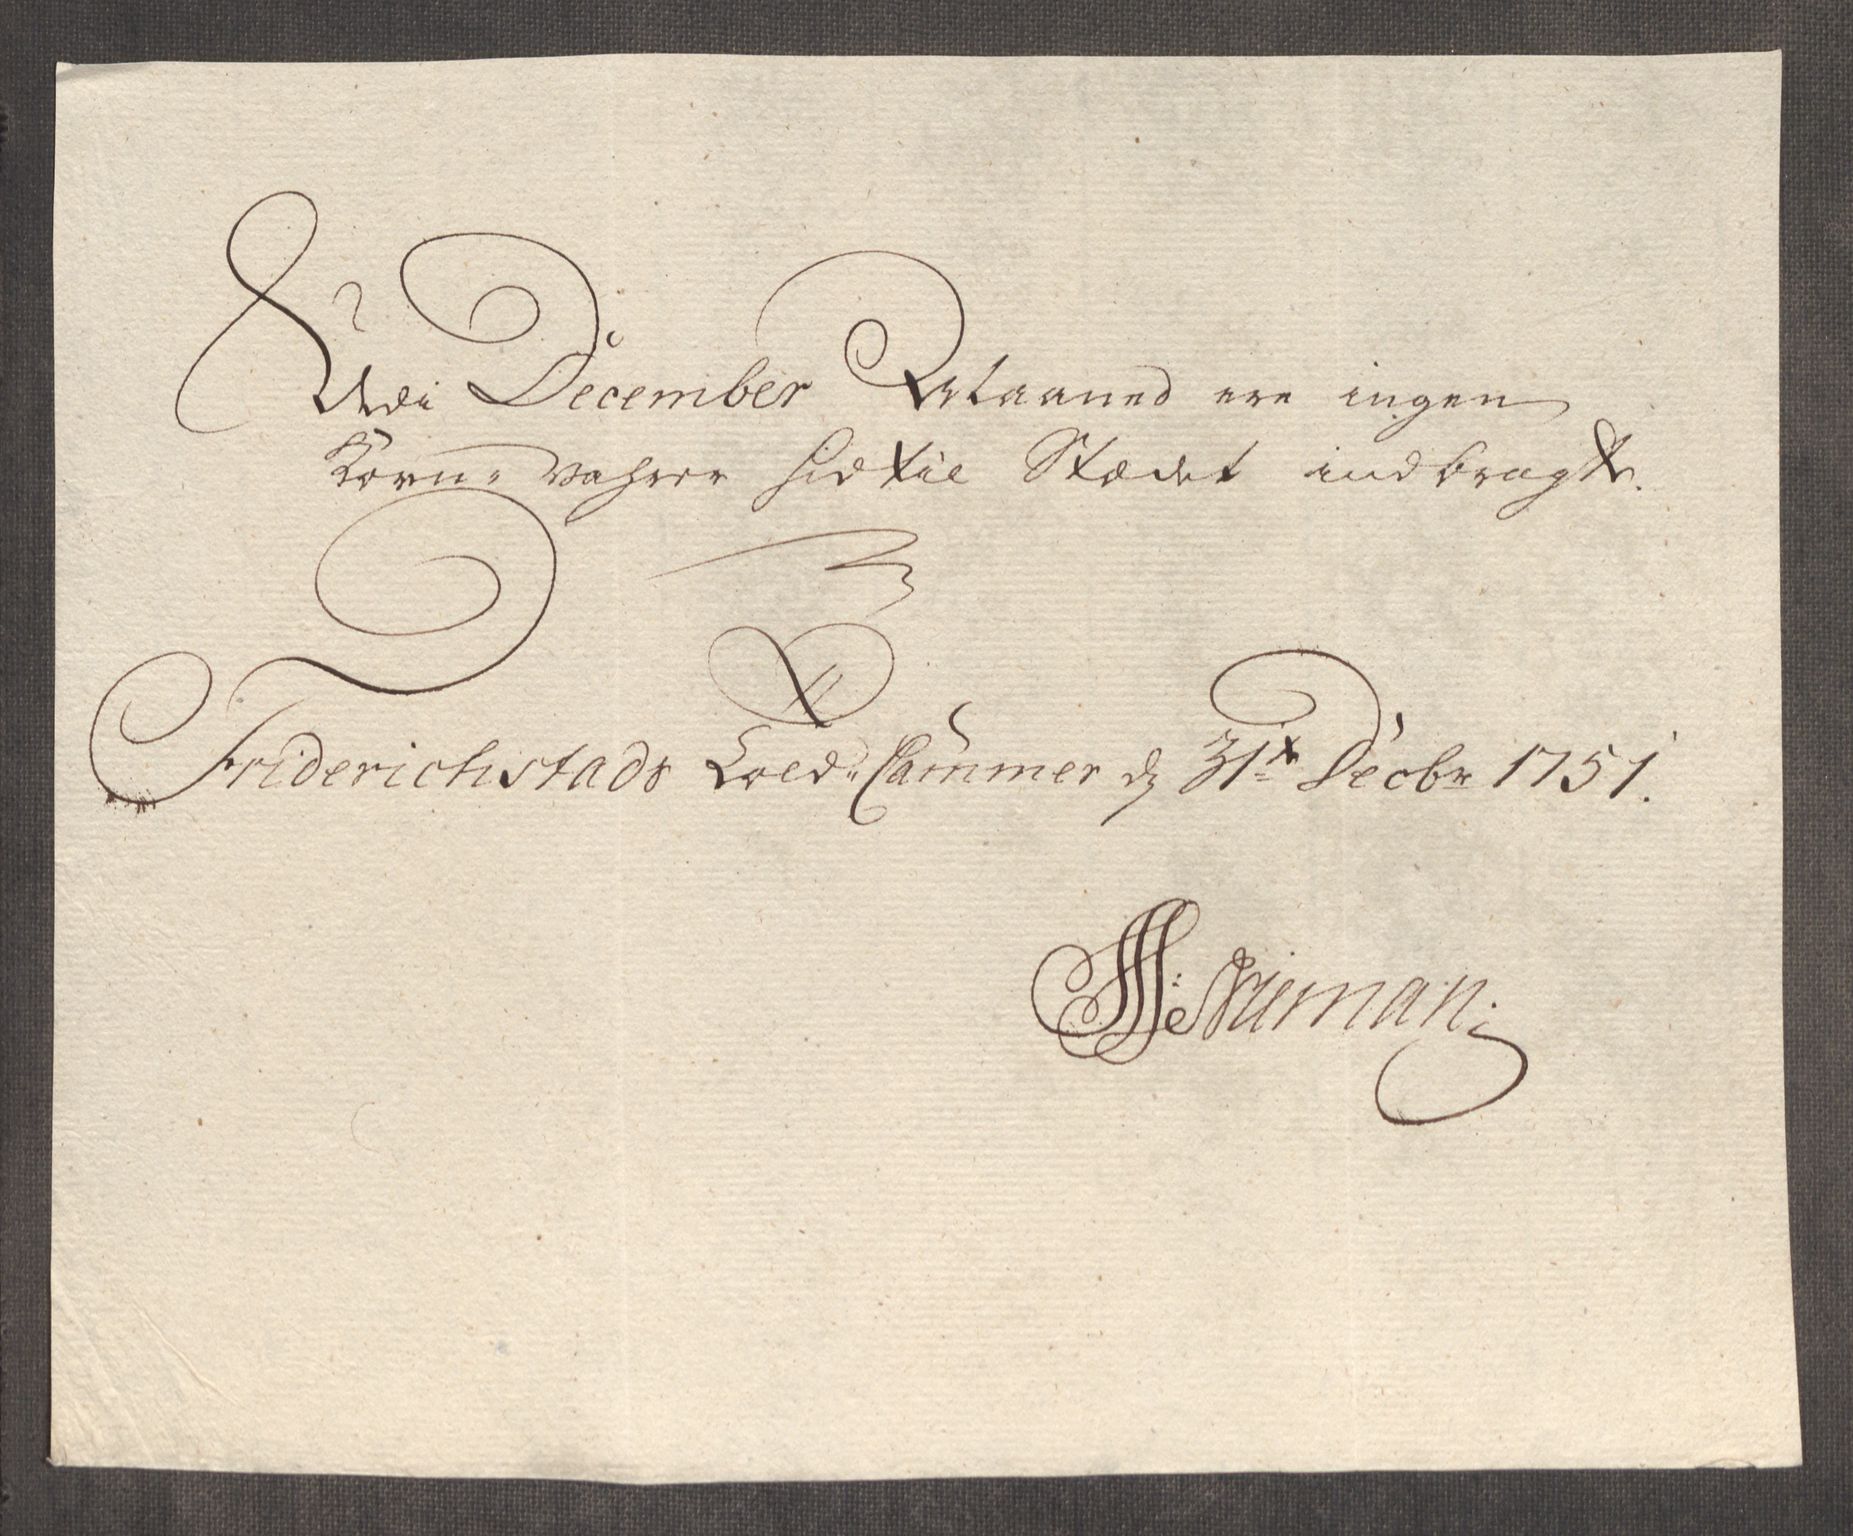 Udi December Maaned ere ingen
Korn-Vahrer hid til Stædet indbragt.
Friderichstads Told-Cammer d. 31te Decbr 1751.